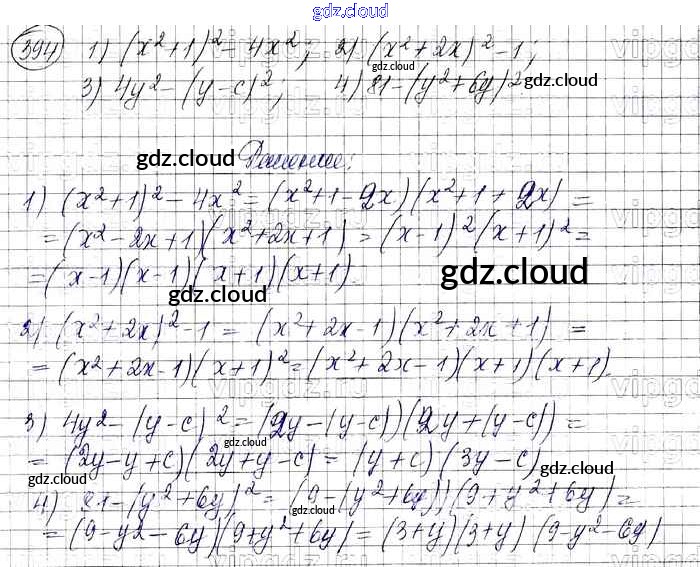 gdz.cloud
394) 1) (x²+1)² - 4x²; 2) (x²+2x)² - 1;
gdz.cloud
3) 4y² - (y-c)²; 4) 81 - (y²+6y)²
gdz.cloud gdz.cloud
gdz.cloud Решение:
1) (x²+1)² - 4x² = (x²+1-2x)(x²+1+2x) =
= (x²-2x+1)(x²+2x+1) = (x-1)²(x+1)² =
= (x-1)(x-1)(x+1)(x+1).
gdz.cloud gdz.cloud
2) (x²+2x)² - 1 = (x²+2x-1)(x²+2x+1) =
= (x²+2x-1)(x+1)² = (x²+2x-1)(x+1)(x+1).
vipgdz.ru
3) 4y² - (y-c)² = (2y-(y-c))(2y+(y-c)) =
gdz.cloud
= (2y-y+c)(2y+y-c) = (y+c)(3y-c)
gdz.cloud gdz.cloud
4) 81 - (y²+6y)² = (9-(y²+6y))(9+y²+6y) =
gdz.cloud
= (9-y²-6y)(9+y²+6y) = (3+y)(3+y)(9-y²-6y)